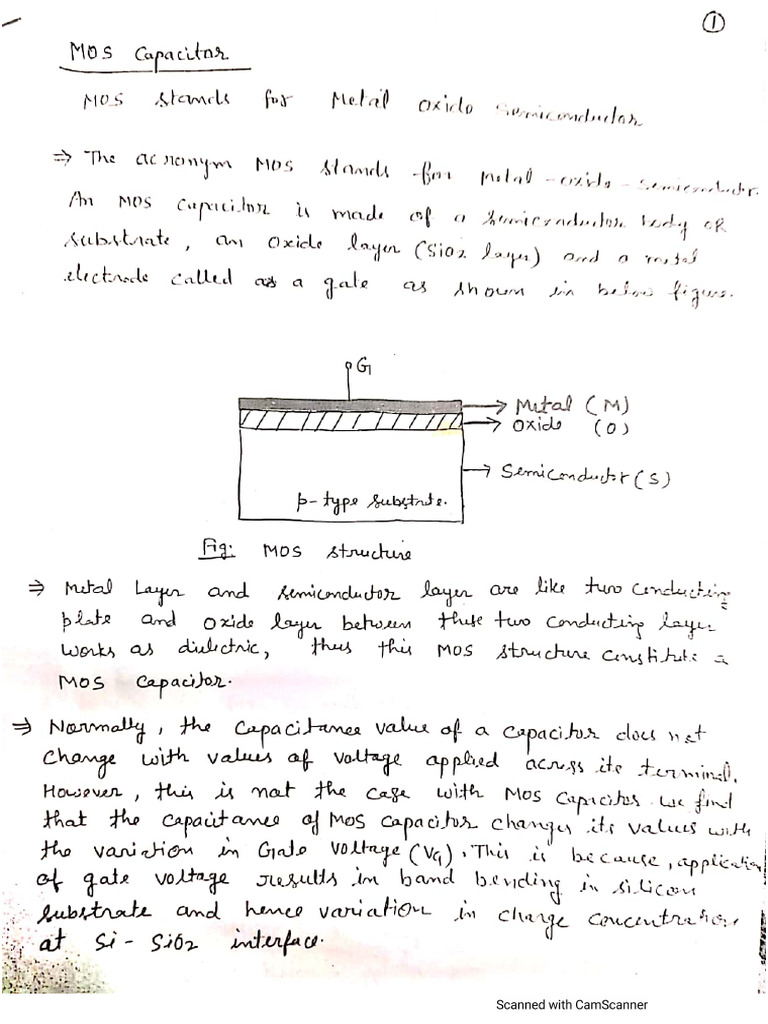 ①
MOS Capacitor
MOS stands for Metal Oxide Semiconductor
⇒ The acronym MOS stands for metal-oxide-semiconductor.
An MOS capacitor is made of a semiconductor body or
substrate, an oxide layer (SiO2 layer) and a metal
electrode called as a gate as shown in below figure.
G
Metal (M)
Oxide (O)
Semiconductor (S)
p-type substrate.
Fig: MOS structure
⇒ Metal Layer and semiconductor layer are like two conducting
plate and oxide layer between these two conducting layer
works as dielectric, thus this MOS structure constitute a
MOS capacitor.
⇒ Normally, the capacitance value of a capacitor does not
change with values of voltage applied across its terminal.
However, this is not the case with MOS capacitor. We find
that the capacitance of MOS capacitor changes its values with
the variation in Gate voltage (VG). This is because, application
of gate voltage results in band bending in silicon
substrate and hence variation in charge concentration
at Si-SiO2 interface.
Scanned with CamScanner